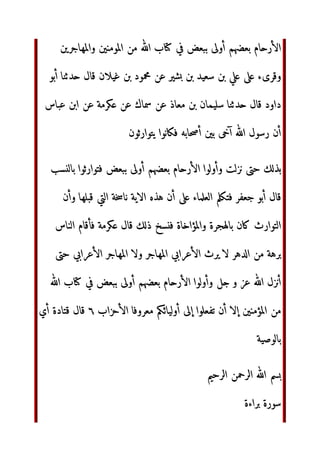 الأرحام بعضهم أولى ببعض في كتاب الله من المومنين والمهاجرين
وقرىء على علي بن سعيد بن بشير عن محمود بن غيلان قال حدثنا أبو
داود قال حدثنا سليمان بن معاذ عن سماك عن عكرمة عن ابن عباس
أن رسول الله آخى بين أصحابه فكانوا يتوارثون
بذلك حتى نزلت وأولوا الأرحام بعضهم أولى ببعض فتوارثوا بالنسب
قال أبو جعفر فتكلم العلماء على أن هذه الاية ناسخة التي قبلها وأن
التوارث كان بالهجرة والمؤاخاة فنسخ ذلك قال عكرمة فأقام الناس
برهة من الدهر لا يرث الأعرابي المهاجر ولا المهاجر الأعرابي حتى
أنزل الله عز و جل وأولوا الأرحام بعضهم أولى ببعض في كتاب الله
من المؤمنين إلا أن تفعلوا إلى أوليائكم معروفا الأحزاب ٦ قال قتادة أي
بالوصية
بسم الله الرحمن الرحيم
سورة براءة